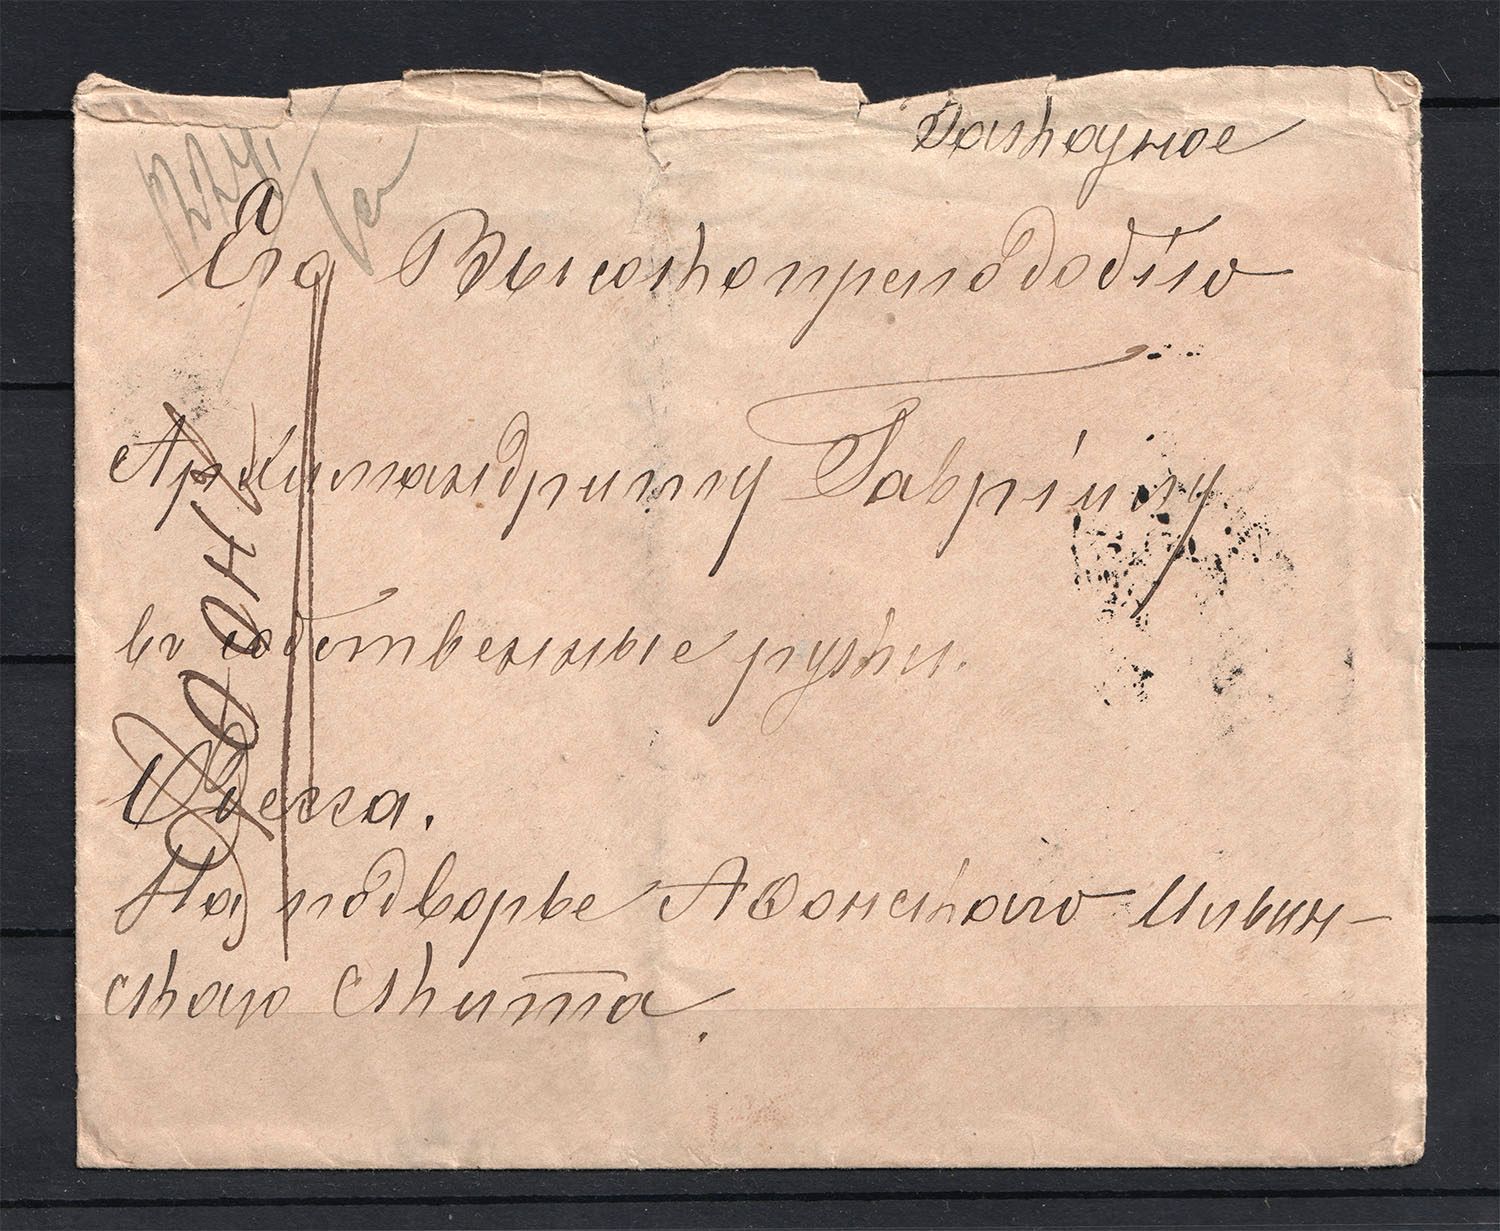 Заказное
Его Высокопреподобію
Архимандриту Гавріилу
въ собственные руки.
Одесса.
На подворье Аѳонскаго Ильин-
скаго скита.